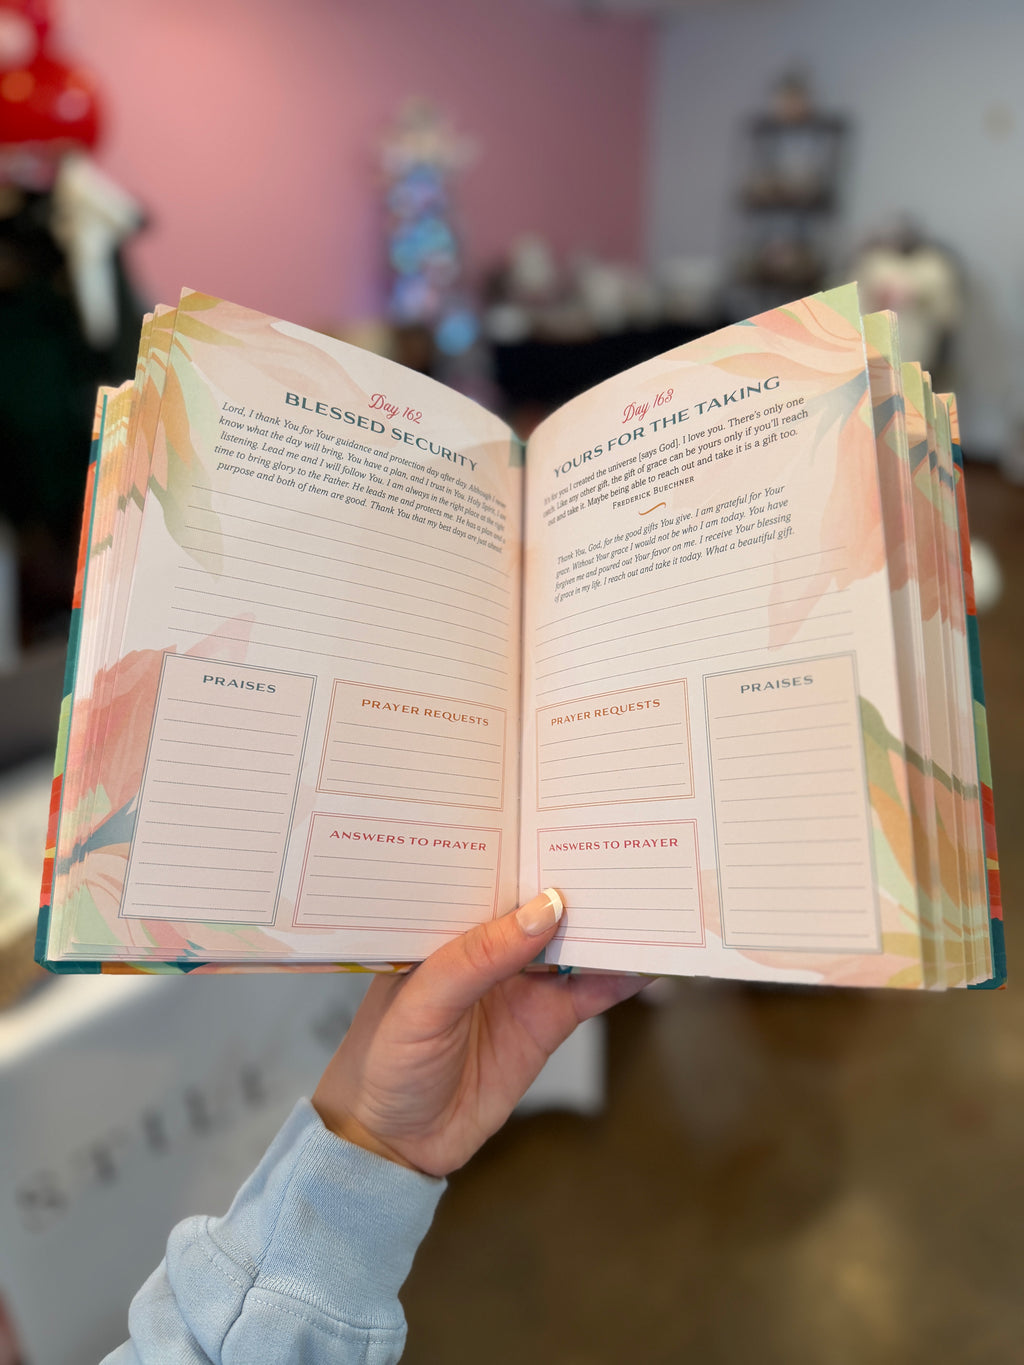 Day 162
BLESSED SECURITY
Lord, I thank You for Your guidance and protection day after day. Although I never
know what the day will bring, You have a plan, and I trust in You. Holy Spirit, I am
listening. Lead me and I will follow You. I am always in the right place at the right
time to bring glory to the Father. He leads me and protects me. He has a plan and a
purpose and both of them are good. Thank You that my best days are just ahead.
PRAISES
PRAYER REQUESTS
ANSWERS TO PRAYER
Day 163
YOURS FOR THE TAKING
It's for you I created the universe [says God]. I love you. There's only one
catch. Like any other gift, the gift of grace can be yours only if you'll reach
out and take it. Maybe being able to reach out and take it is a gift too.
FREDERICK BUECHNER
Thank You, God, for the good gifts You give. I am grateful for Your
grace. Without Your grace I would not be who I am today. You have
forgiven me and poured out Your favor on me. I receive Your blessing
of grace in my life. I reach out and take it today. What a beautiful gift.
PRAYER REQUESTS
PRAISES
ANSWERS TO PRAYER